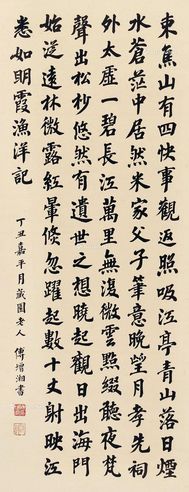 來焦山有四快事觀返照吸江亭青山落日煙
水蒼茫中居然米家父子筆意晚望月孝先祠
外太虛一碧長江萬里無復微雲點綴聽夜梵
聲出松杪悠然有遺世之想曉起觀日出海門
始從遠林微露紅暈倏忽躍起數十丈射映江
悉如明霞漁洋記
丁丑嘉平月藏園老人傅增湘書